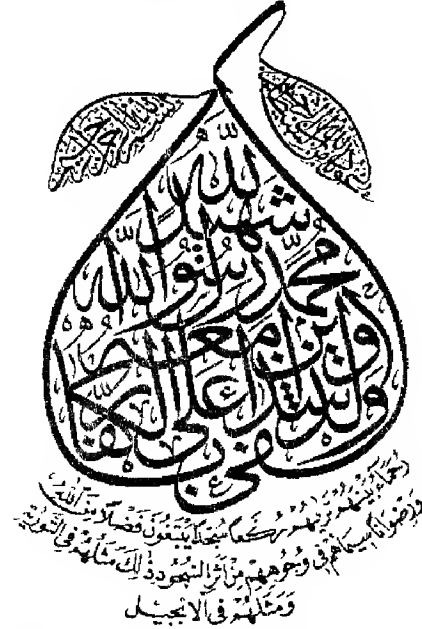 وكفى بالله شهيدا
محمد رسول الله
والذين معه
أشداء على الكفار
رحماء بينهم تريهم ركعا سجدا يبتغون فضلا من الله
ورضوانا سيماهم في وجوههم من اثر السجود ذلك مثلهم في التورية
ومثلهم في الانجيل